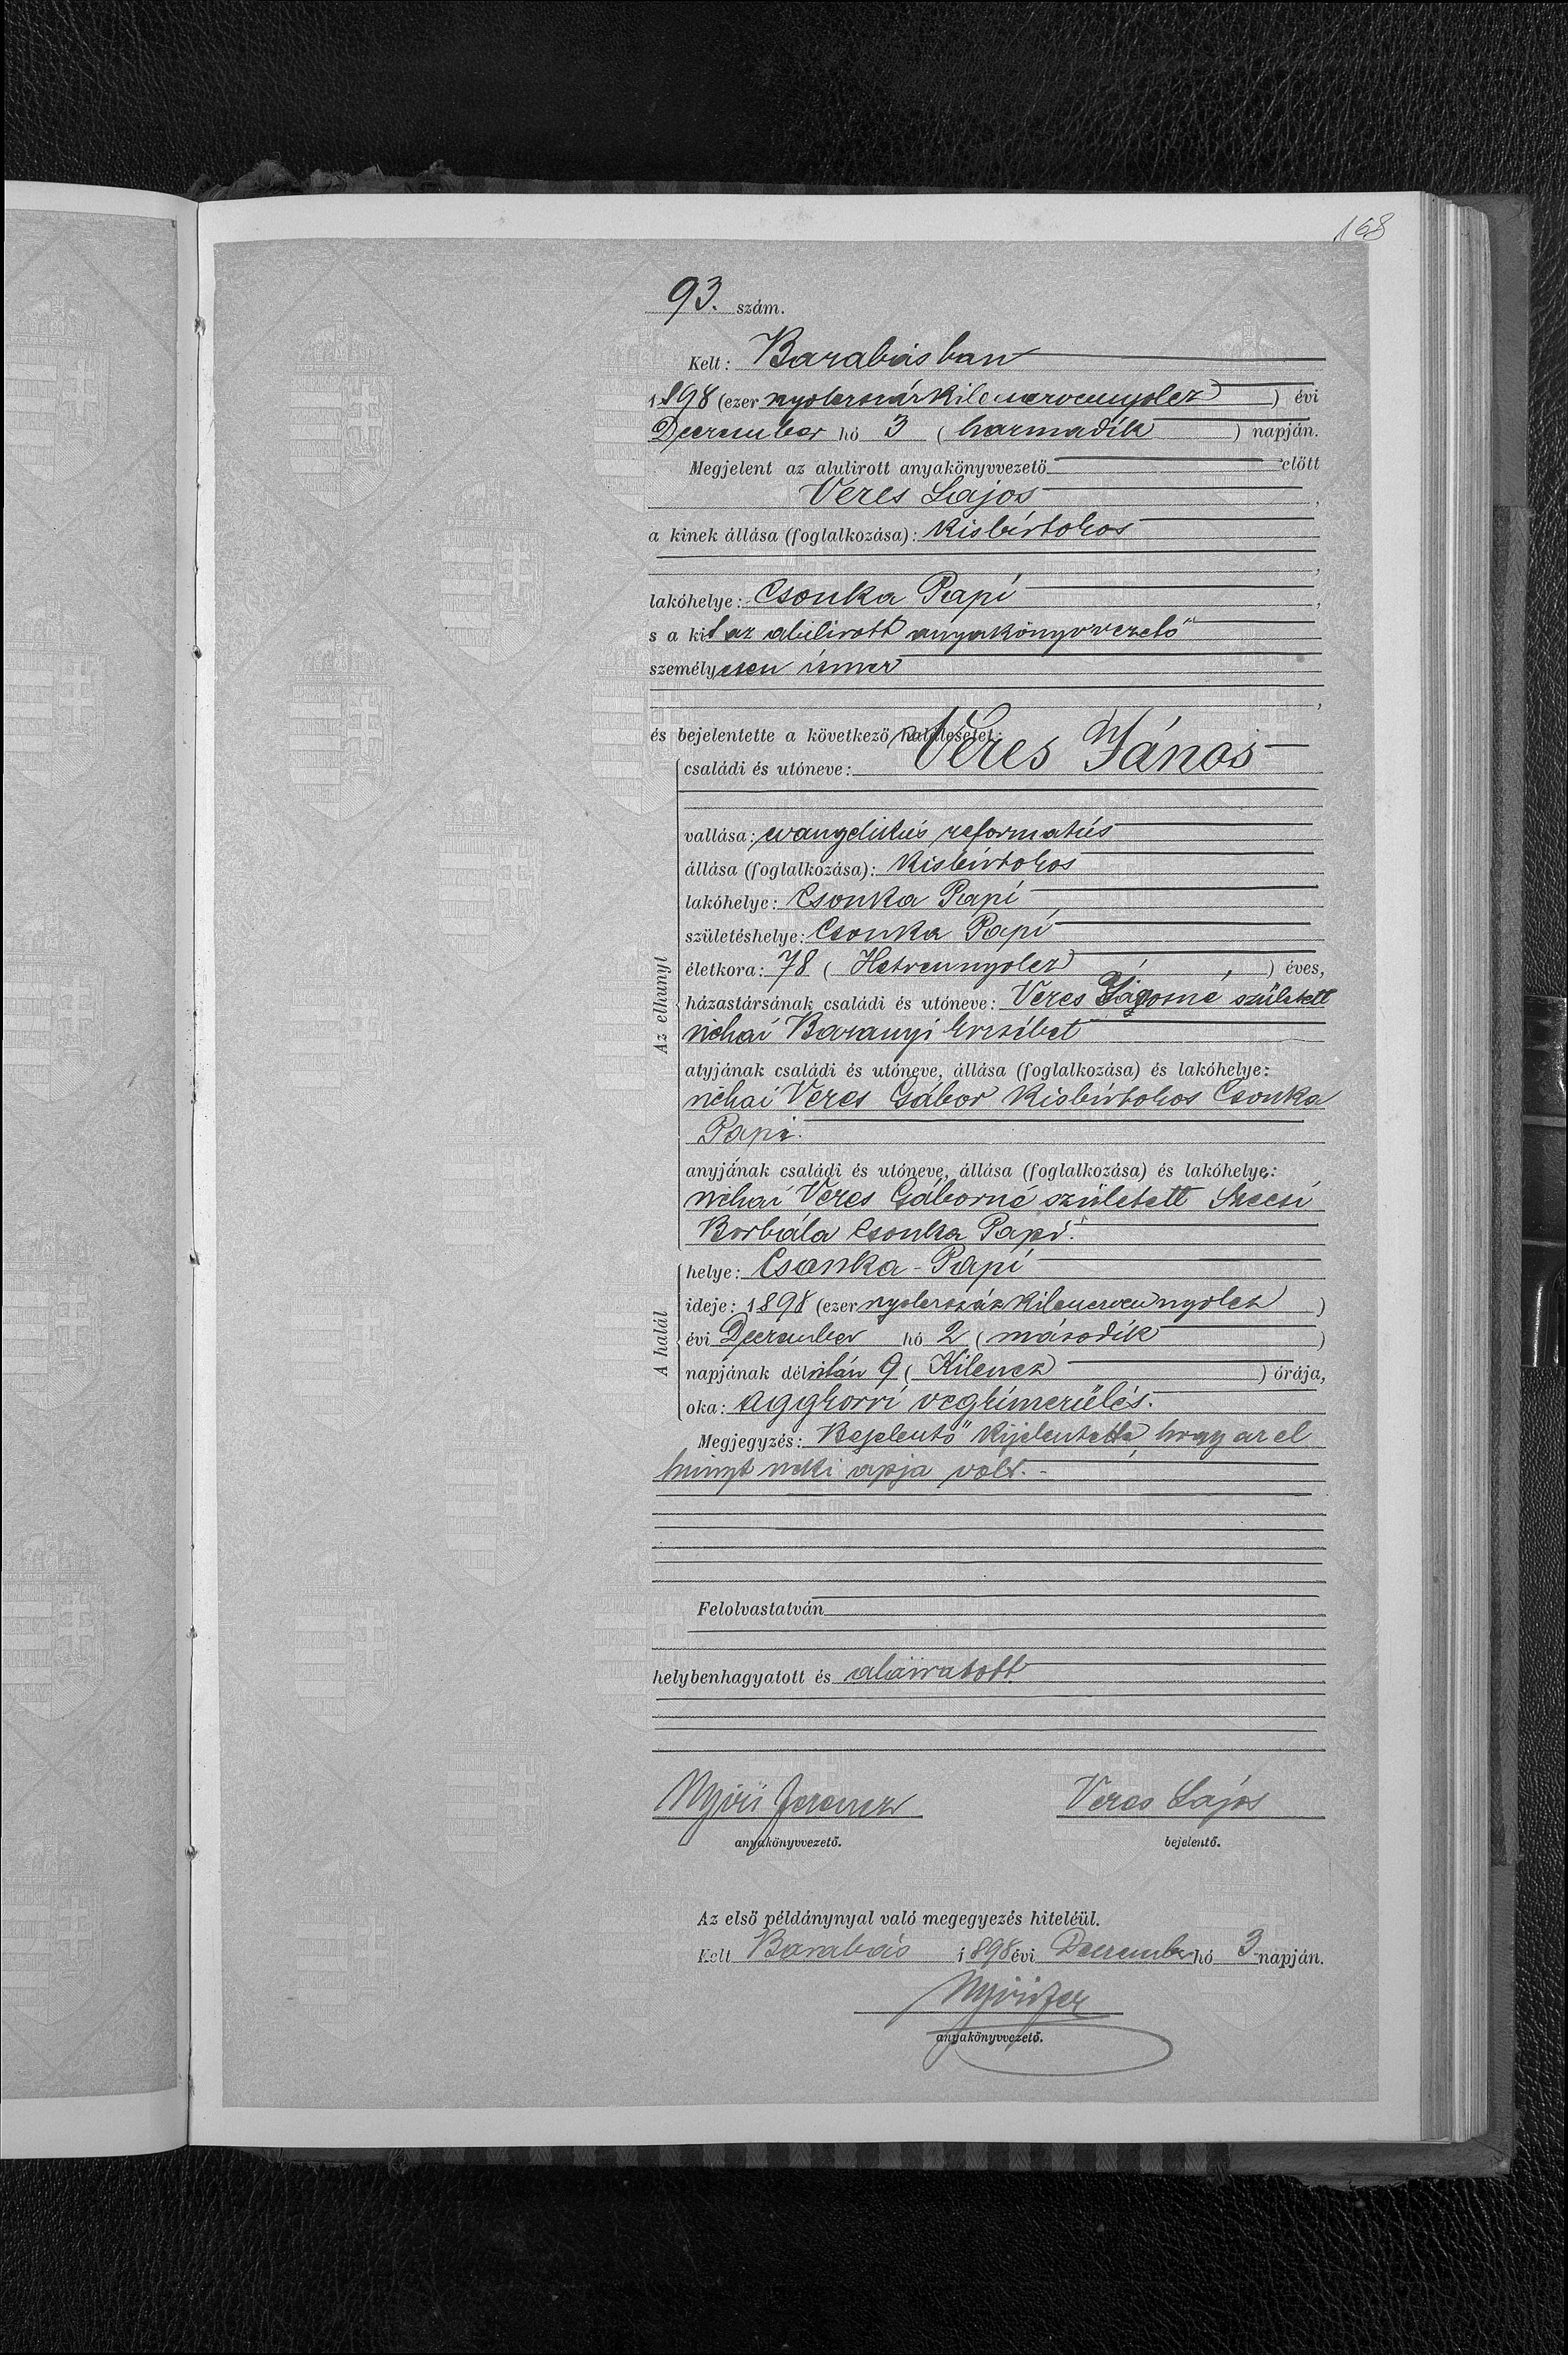 168
93. szám.
Kelt: Barabásban
1898 (ezer nyolczszázkilenczvennyolcz) évi
Deczember hó 3 (harmadik) napján.
Megjelent az alulirott anyakönyvvezető előtt
Veres Lajos,
a kinek állása (foglalkozása): Kisbirtokos
,
lakóhelye: Csonka Papi,
s a kit az alulirott anyakönyvvezető
személyesen ismer
,
és bejelentette a következő halálesetet:
családi és utóneve: Veres János
vallása: evangelikús reformatús
állása (foglalkozása): Kisbirtokos
lakóhelye: Csonka Papi
születéshelye: Csonka Papi
életkora: 78 (Hetvennyolcz) éves,
házastársának családi és utóneve: Veres Jánosné született
néhai Baranyi Erzsébet
Az elhunyt
atyjának családi és utóneve, állása (foglalkozása) és lakóhelye:
néhai Veres Gábor Kisbirtokos Csonka
Papi.
anyjának családi és utóneve, állása (foglalkozása) és lakóhelye:
néhai Veres Gáborné született Szecsi
Borbála Csonka Papi.
A halál
helye: Csonka-Papi
ideje: 1898 (ezer nyolczszázkilenczvennyolcz)
évi Deczember hó 2 (második)
napjának délután 9 (Kilencz) órája,
oka: aggkori végkimerülés.
Megjegyzés: Bejelentő kijelentette, hogy az el
hunyt neki apja volt.-
Felolvastatván
helybenhagyatott és aláiratott.
Nyiri Ferencz Veres Lajos
anyakönyvvezető. bejelentő.
Az első példánynyal való megegyezés hiteléül.
Kelt Barabás 1898 évi Deczember hó 3 napján.
Nyiri Fer
anyakönyvvezető.